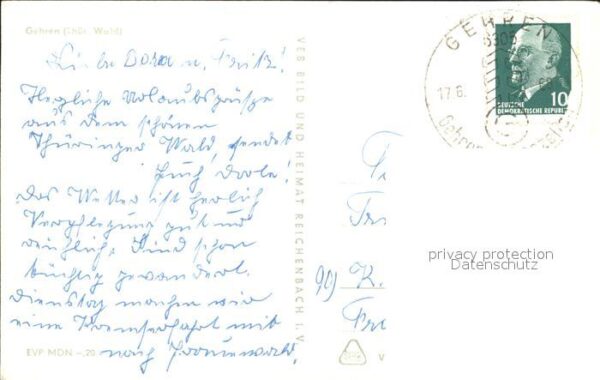 Gehren (Thür. Wald)
Liebe Dora u. Fritz!
Herzliche Urlaubsgrüße
aus dem schönen
Thüringer Wald, sendet
Euch Dorle!
Das Wetter ist herlich
Verpflegung gut und
reichlich. Sind schon
tüchtig gewandert.
Dienstag machen wir
eine Kremserfahrt mit
nach
EVP MDN -,20
VEB BILD UND HEIMAT REICHENBACH I. V.
GEHREN
6305
17.6.
Gehren
DEUTSCHE
DEMOKRATISCHE REPUBLIK
10
90
K.
V
privacy protection
Datenschutz